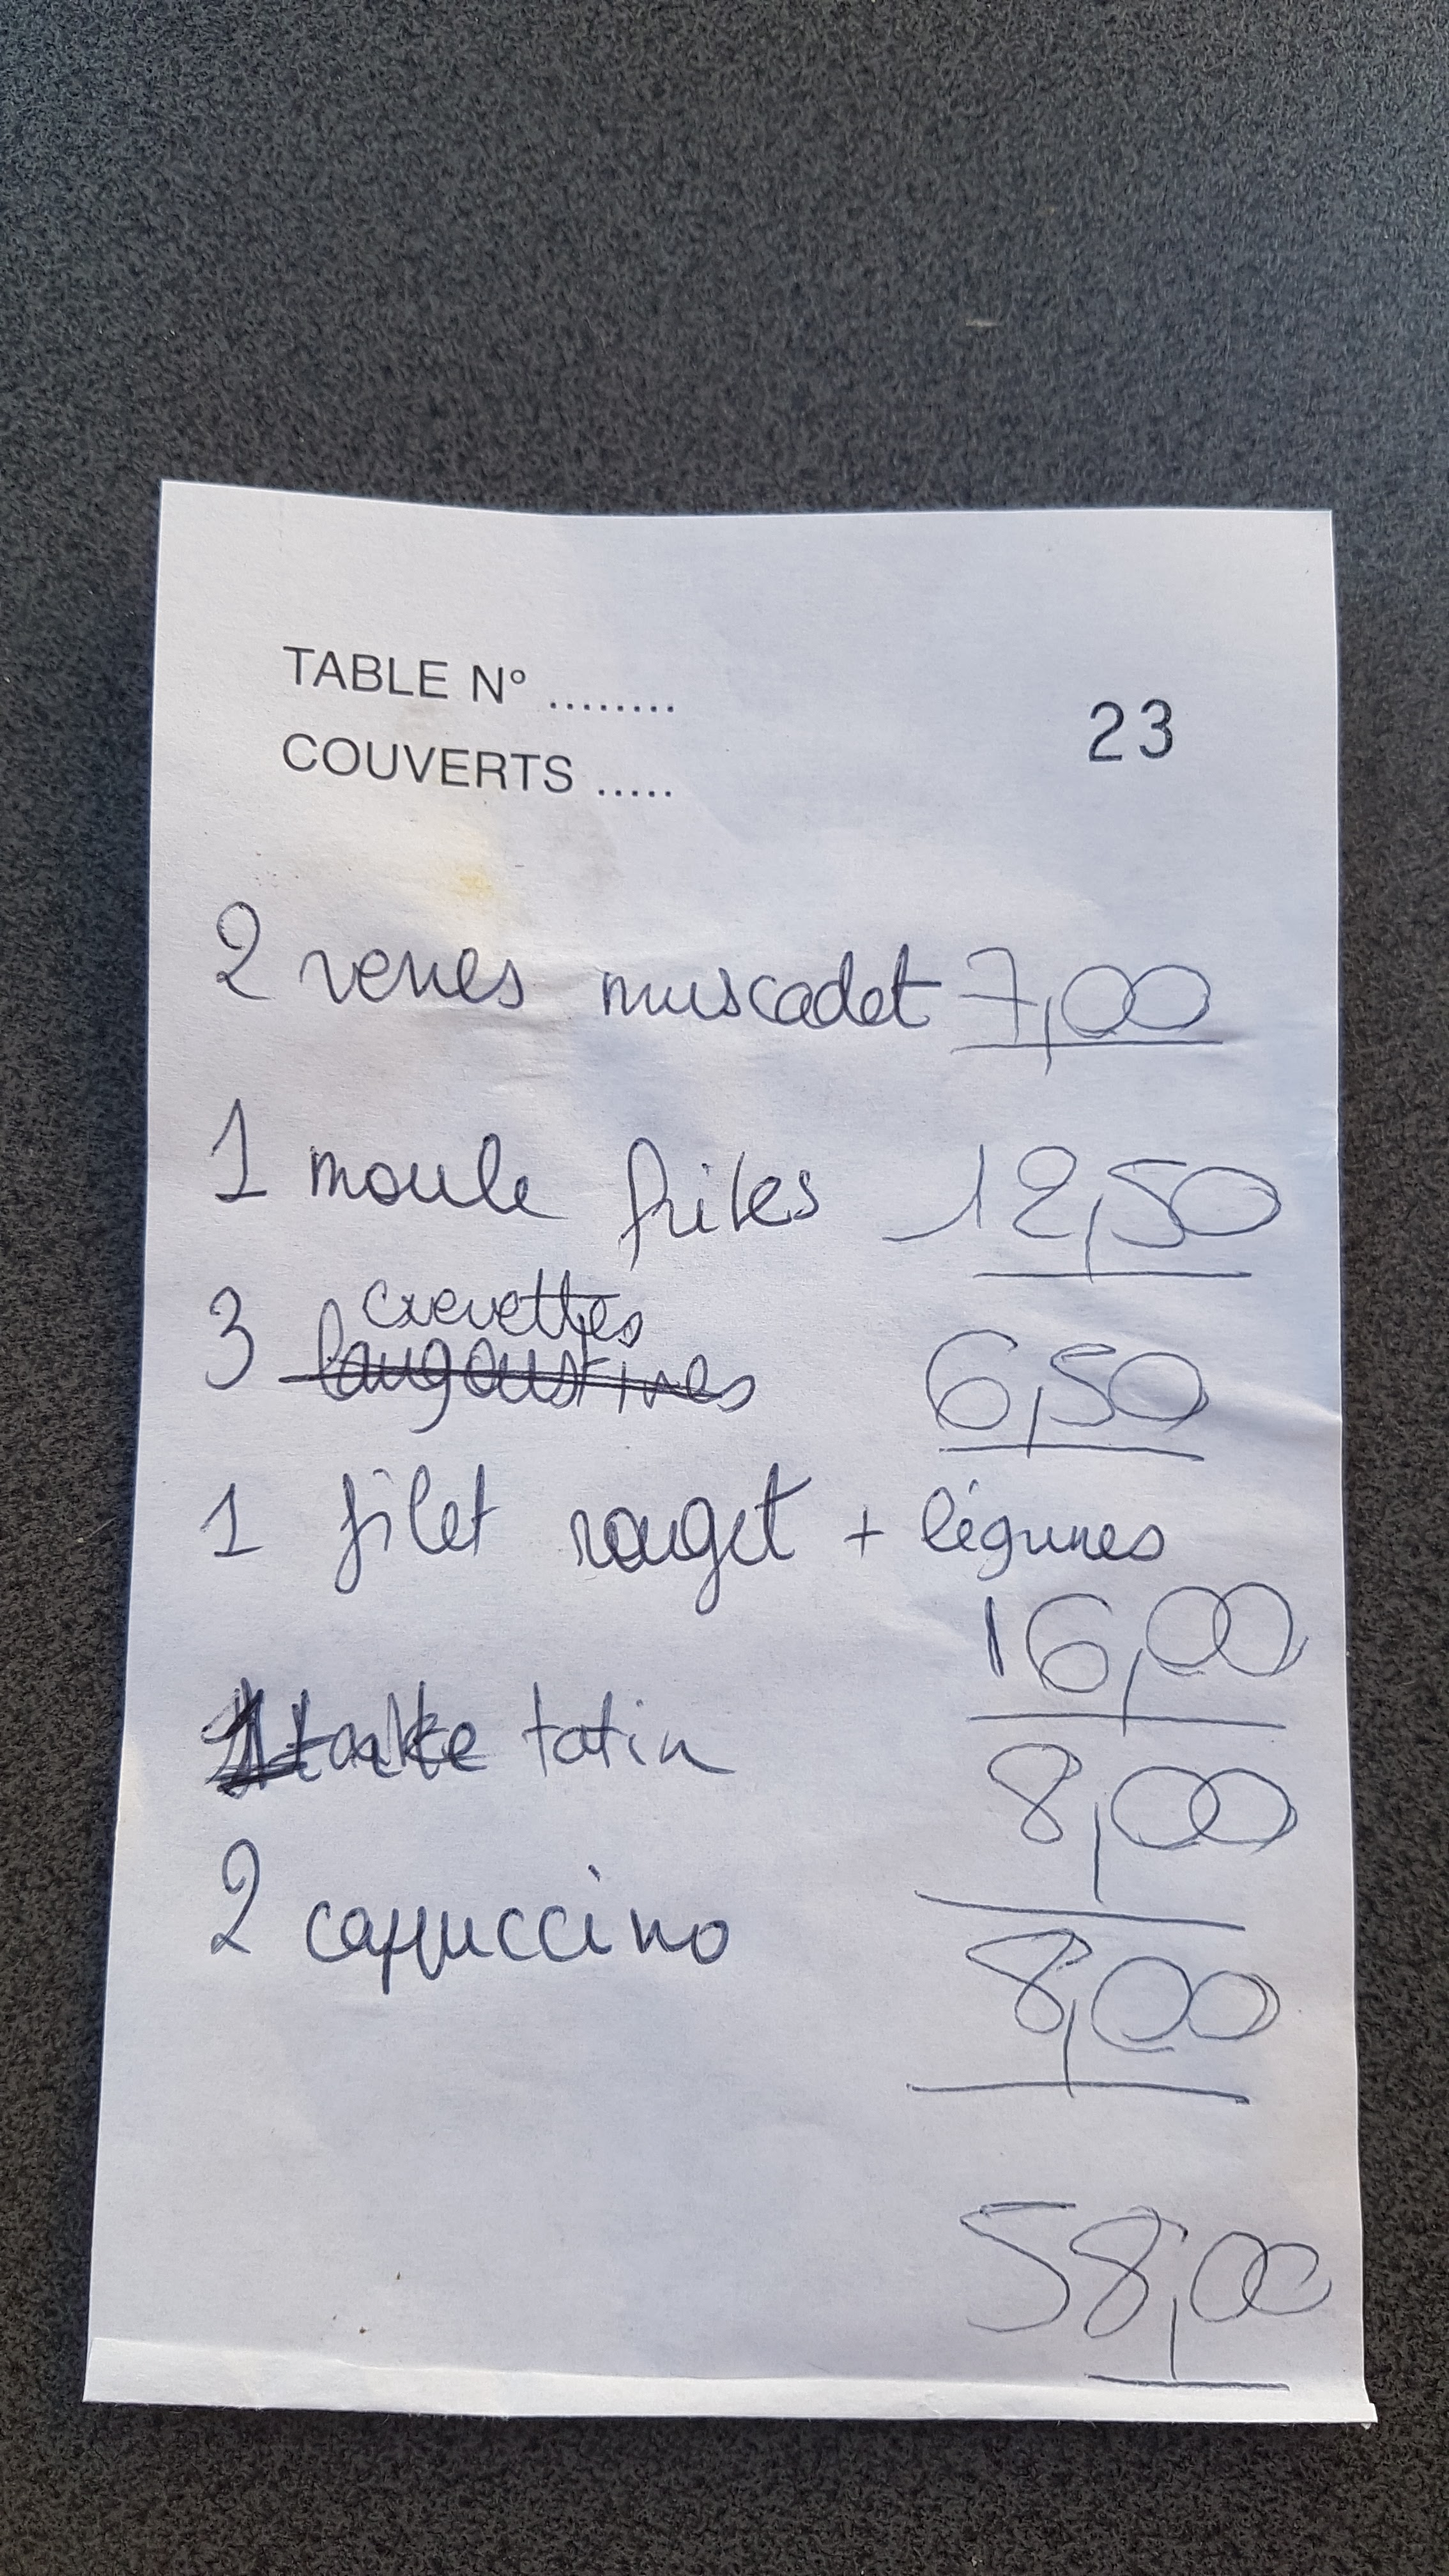 TABLE N° ........
COUVERTS .....
23
2 verres muscadet 7,00
1 moule frites 12,50
crevettes
3 langoustines 6,50
1 filet rouget + légumes
16,00
tarte tatin 8,00
2 cappuccino 8,00
58,00